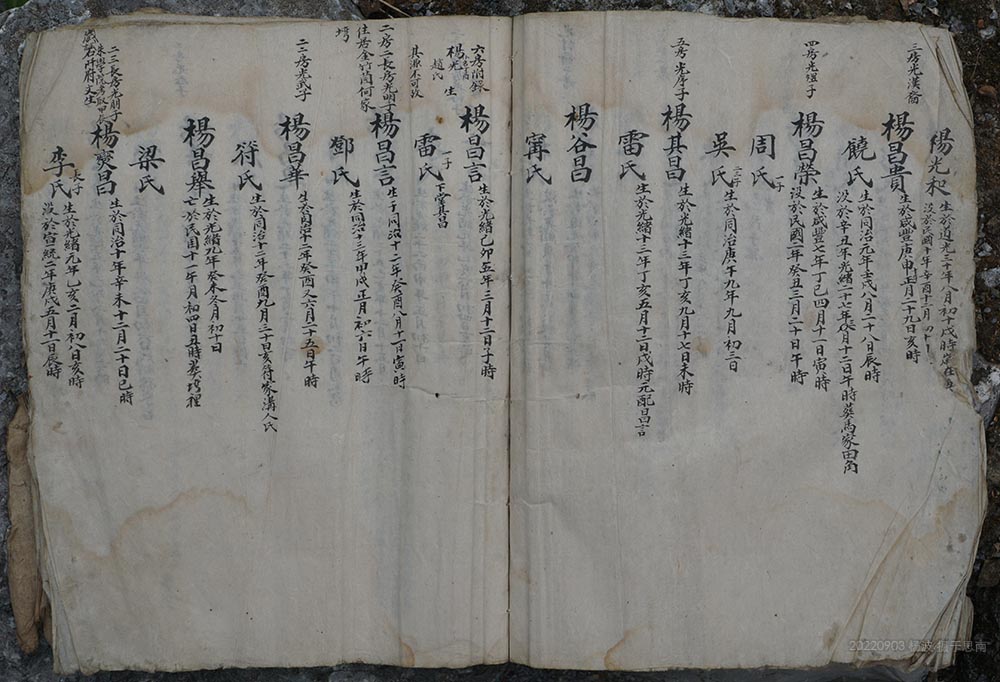 三房光漢裔
楊光和 生於道光三十年八月初十戌時
沒於民國十年辛酉十二月初十
楊昌貴 生於咸豐庚申年正月二十九日亥時
饒氏 生於同治元年壬戌八月二十八日辰時
沒於辛丑年光緒二十七年 月十二日午時葬馬家田角
四房光煊子
楊昌榮 生於咸豐七年丁巳四月十一日寅時
沒於民國二年癸丑三月二十日午時
周氏 一子
吳氏 二子 生於同治庚午九年九月初三日
五房光厚子
楊其昌 生於光緒十三年丁亥九月十七日未時
雷氏 生於光緒十三年丁亥五月十二日戌時元配昌言
楊谷昌
甯氏
六房附錄
楊光 生
趙氏
其派不可考
楊昌言 生於光緒己卯五年三月十二日子時
雷氏 一子 下堂其昌
二房二長房光明子
住居金竹蘭何家
塆
楊昌言 生于同治十二年癸酉八月十一日寅時
鄧氏 生於同治十三年甲戌正月初六日午時
二二房光武子
楊昌華 生於同治十二年癸酉又六月二十五日午時
符氏 生於同治十二年癸酉九月三十日亥時符家溝人氏
楊昌舉 生於光緒九年癸未冬月初十日
亡於民國十一年十月初四日丑時葬塆裡
梁氏
二三長房光朋子
歲若阡府文生
楊燮昌 生於同治十年辛未十二月二十日巳時
李氏 長子 生於光緒元年乙亥二月初八日亥時
沒於宣統二年庚戌五月十一日辰時
20220903 楊波 值于思南